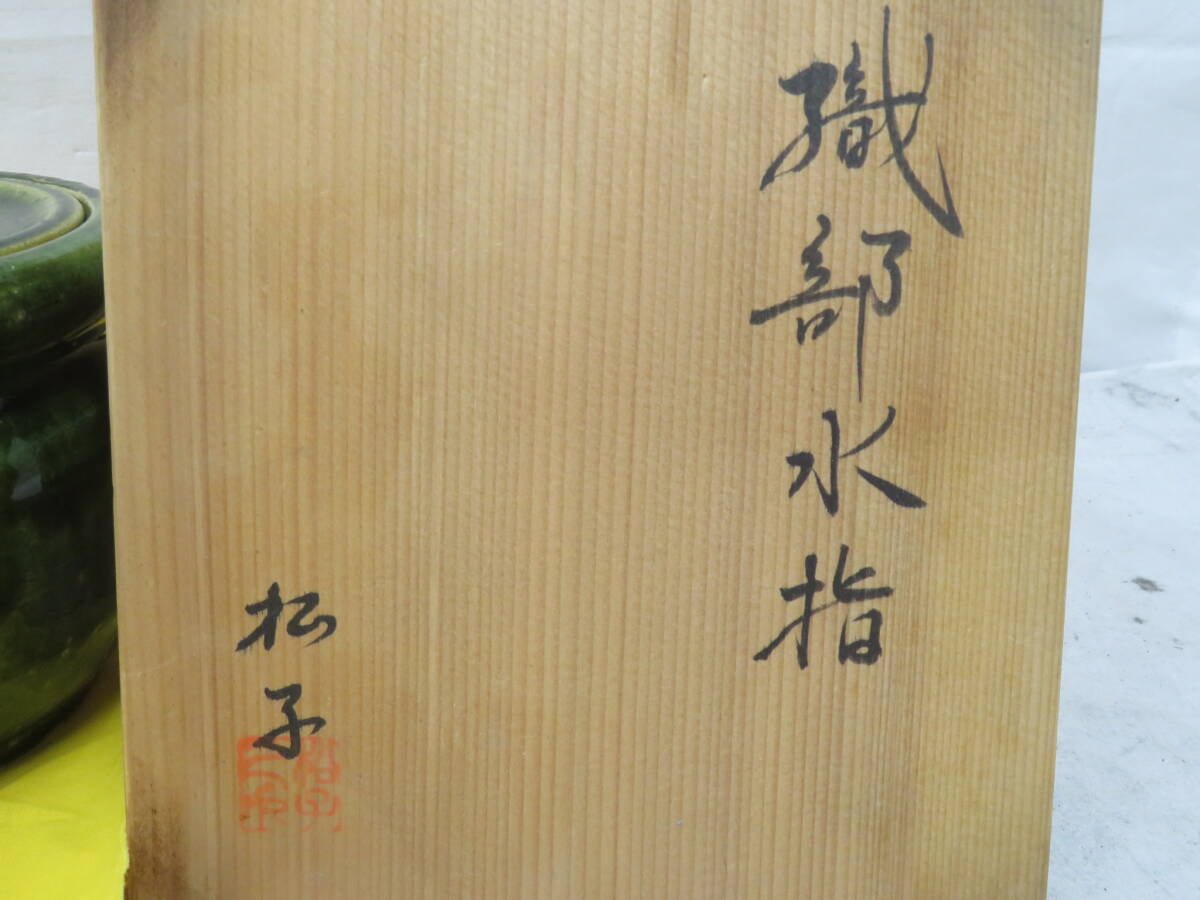 織部水指
松子